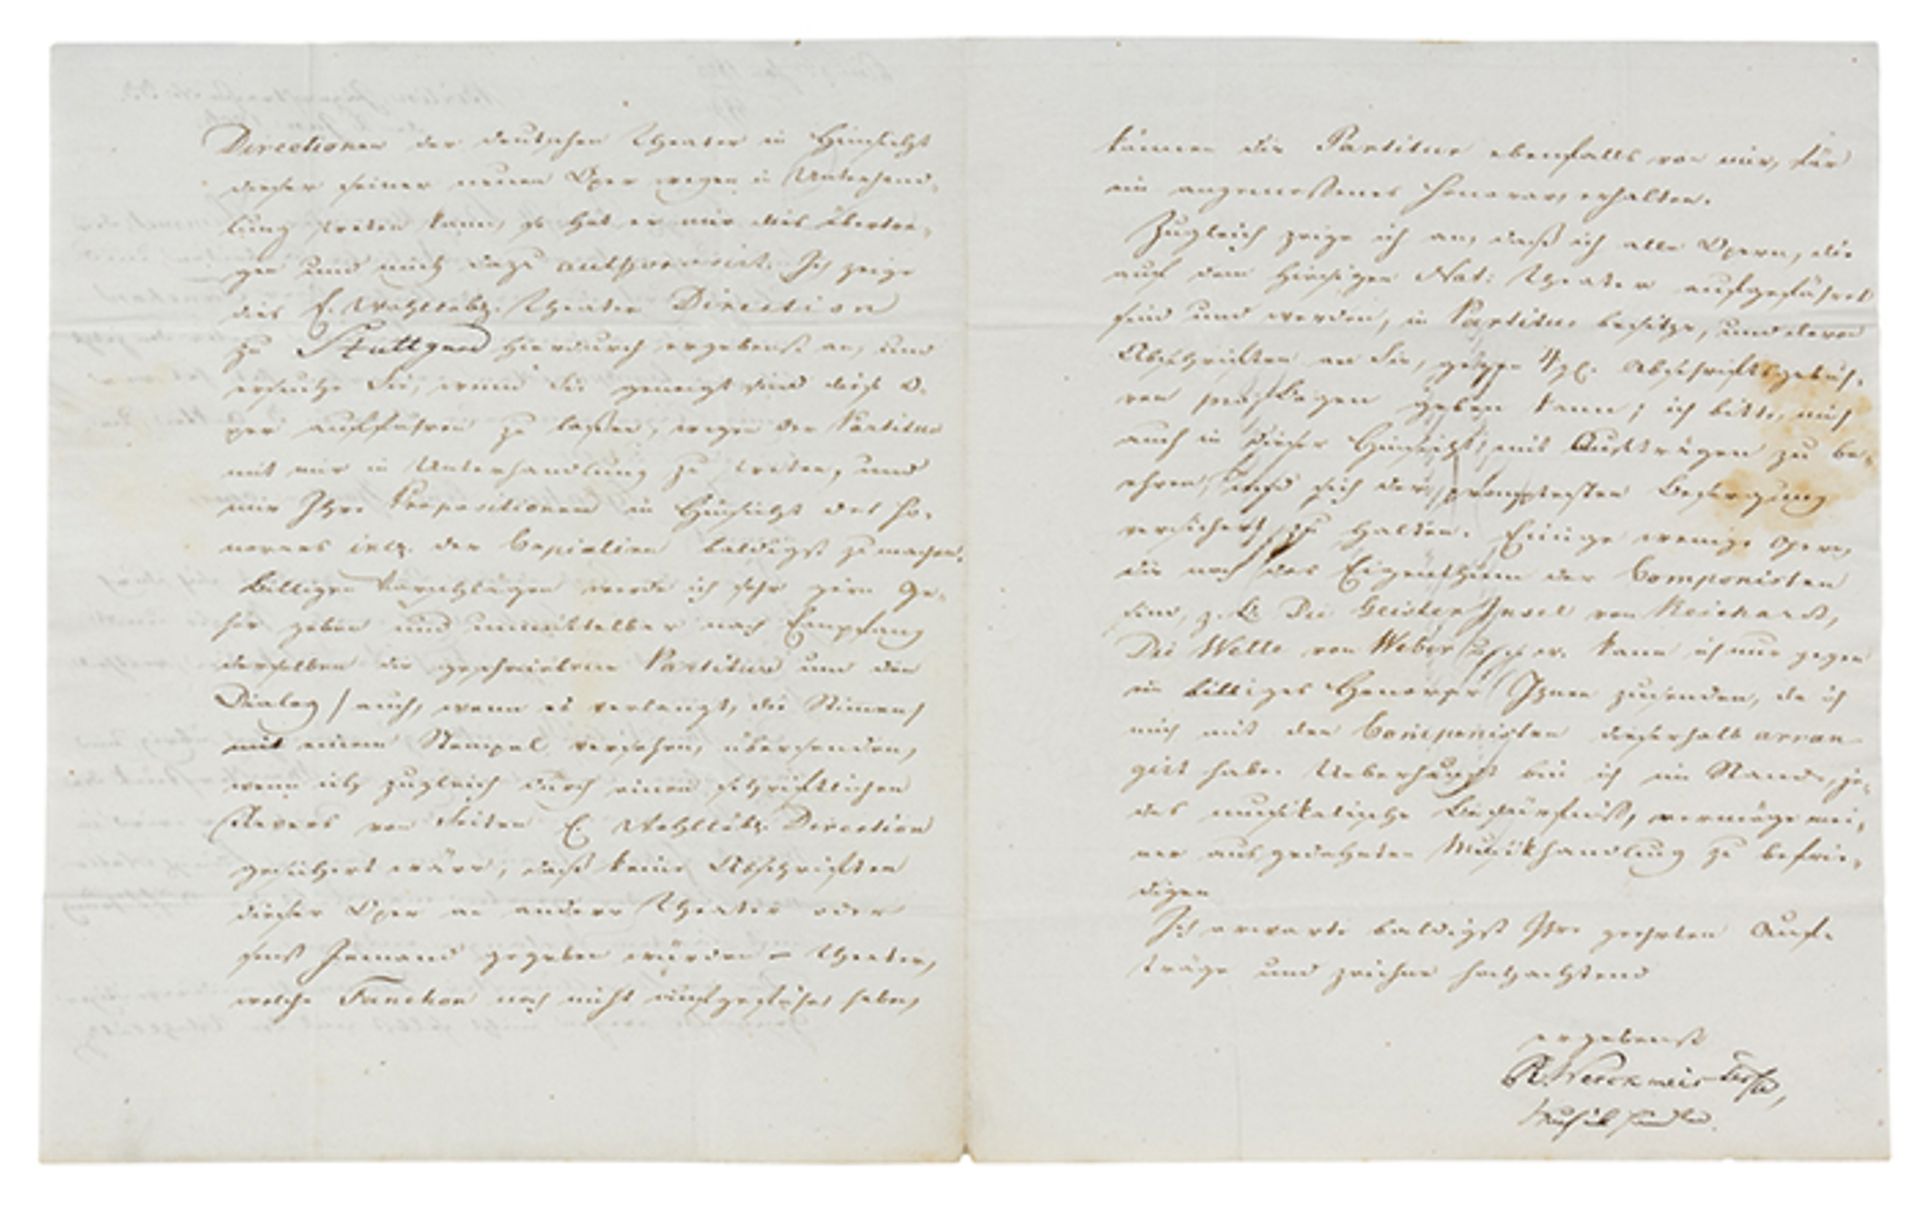 Directionen der deutschen Theater in Hinsicht
dieser seiner neuen Oper wegen in Unterhand-
lung treten kann, so hat er mir dies übertra-
gen und mich dazu authorisirt. Ich zeige
dies E. Wohllöbl. Theater Direction
zu Stuttgard hierdurch ergebenst an, und
ersuche Sie, wenn Sie geneigt sind diese O-
per aufführen zu laßen, wegen der Partitur
mit mir in Unterhandlung zu treten, und
mir Ihre Propositionen in Hinsicht des Ho-
norars incl. der Copialien baldigst zu machen.
Billigen Vorschlägen werde ich sehr gern Ge-
hör geben und unmittelbar nach Empfang
derselben die geschriebene Partitur und den
Dialog / auch, wenn es verlangt, die Stimmen /
mit einem Stempel versehen, übersenden,
wenn ich zugleich durch einen schriftlichen
Revers von Seiten E. Wohllöbl. Direction
gesichert wäre, daß keine Abschriften
dieser Oper an andere Theater oder
sonst Jemand gegeben würden – Theater,
welche Fanchon noch nicht aufgeführt haben,
können die Partitur ebenfalls von mir, für
ein angemessenes Honorar, erhalten.
Zugleich zeige ich an, daß ich alle Opern, die
auf dem hiesigen Nat: Theater aufgeführt
sind und werden, in Partitur besitze, und davon
Abschriften an Sie, gegen 4 gl. Abschriftsgebüh-
ren pro Bogen geben kann; ich bitte, mich
auch in dieser Hinsicht mit Aufträgen zu be-
ehren, und sich der promptesten Besorgung
versichert zu halten. Einige wenige Opern,
die noch das Eigenthum der Componisten
sind, z. B. Die Geister Insel von Reichard,
Die Wette von Weber kann ich nur gegen
ein billiges Honorar Ihnen zusenden, da ich
mich mit den Componisten dieserhalb arran-
girt habe. Ueberhaupt bin ich im Stande, je-
des musikalische Bedürfniß, vermöge mei-
ner ausgedehnten Musikhandlung zu befrie-
digen
Ich erwarte baldigst Ihre geehrten Auf-
träge und zeichne hochachtend
ergebenst
R. Werckmeister
Musikhändler.